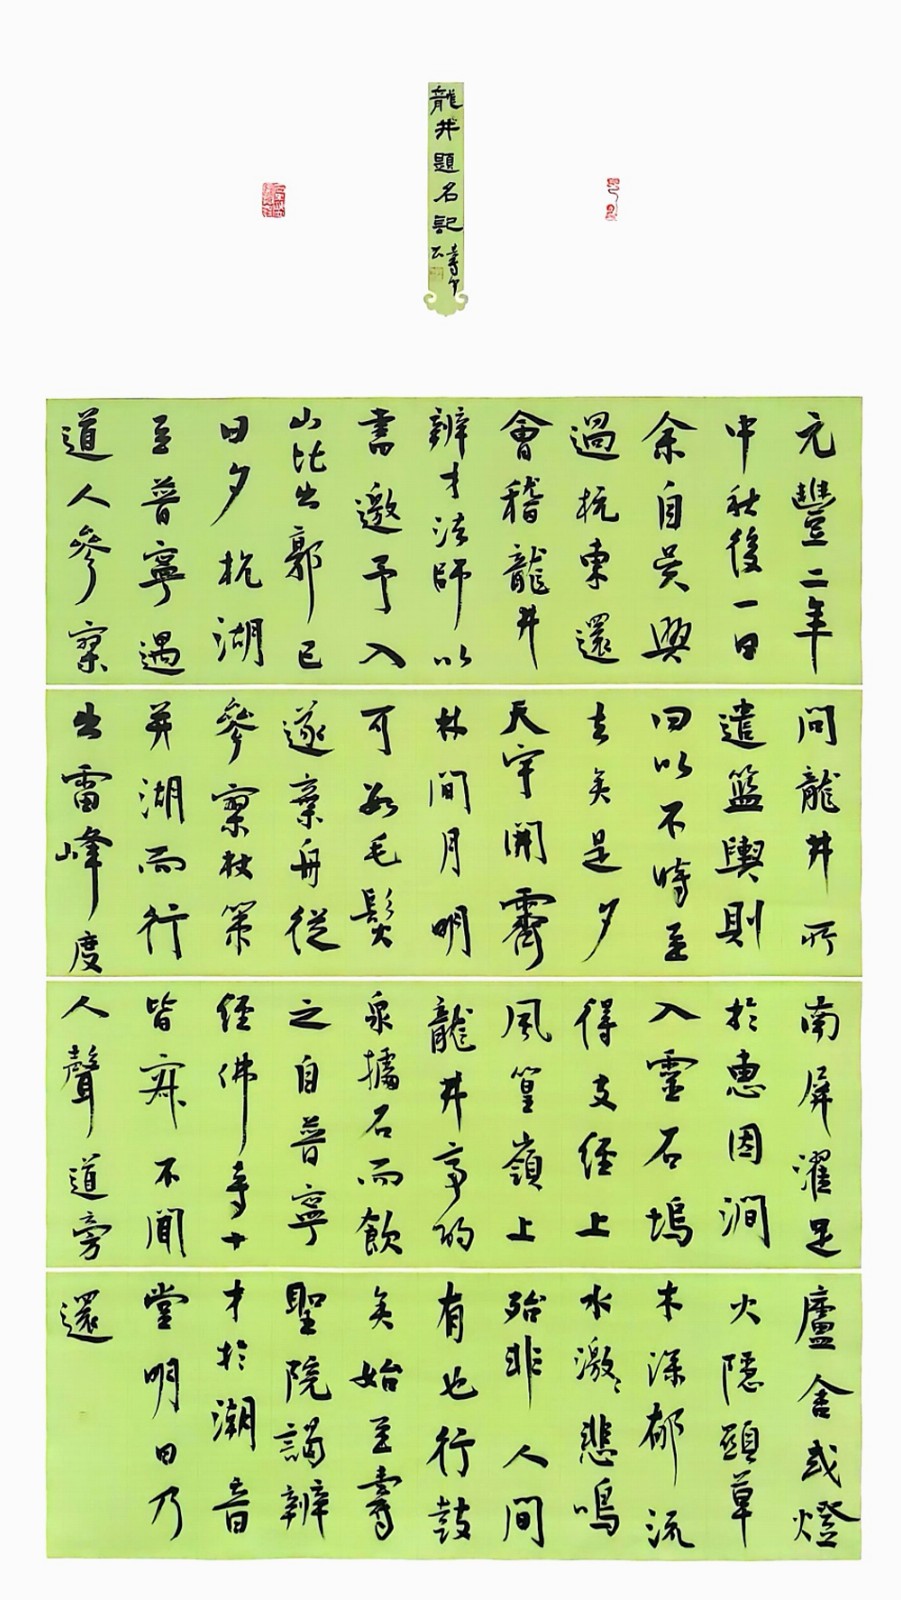 龍井題名記
元豐二年
中秋後一日
余自吳興
過杭東還
會稽龍井
辨才法師以
書邀予入
山比出郭已
日夕杭湖
至普寧遇
道人參寥
問龍井所
遣籃輿則
曰以不時至
去矣是夕
天宇開霽
林間月明
可數毛髮
遂棄舟從
參寥杖策
并湖而行
出雷峰度
南屏濯足
於惠因澗
入靈石塢
得支經上
風篁嶺上
龍井亭酌
泉據石而飲
之自普寧
經佛寺十
皆寂不聞
人聲道旁
廬舍或燈
火隱顯草
木深郁流
水激〻悲鳴
殆非人間
有也行鼓
矣始至壽
聖院謁辨
才於潮音
堂明日乃
還